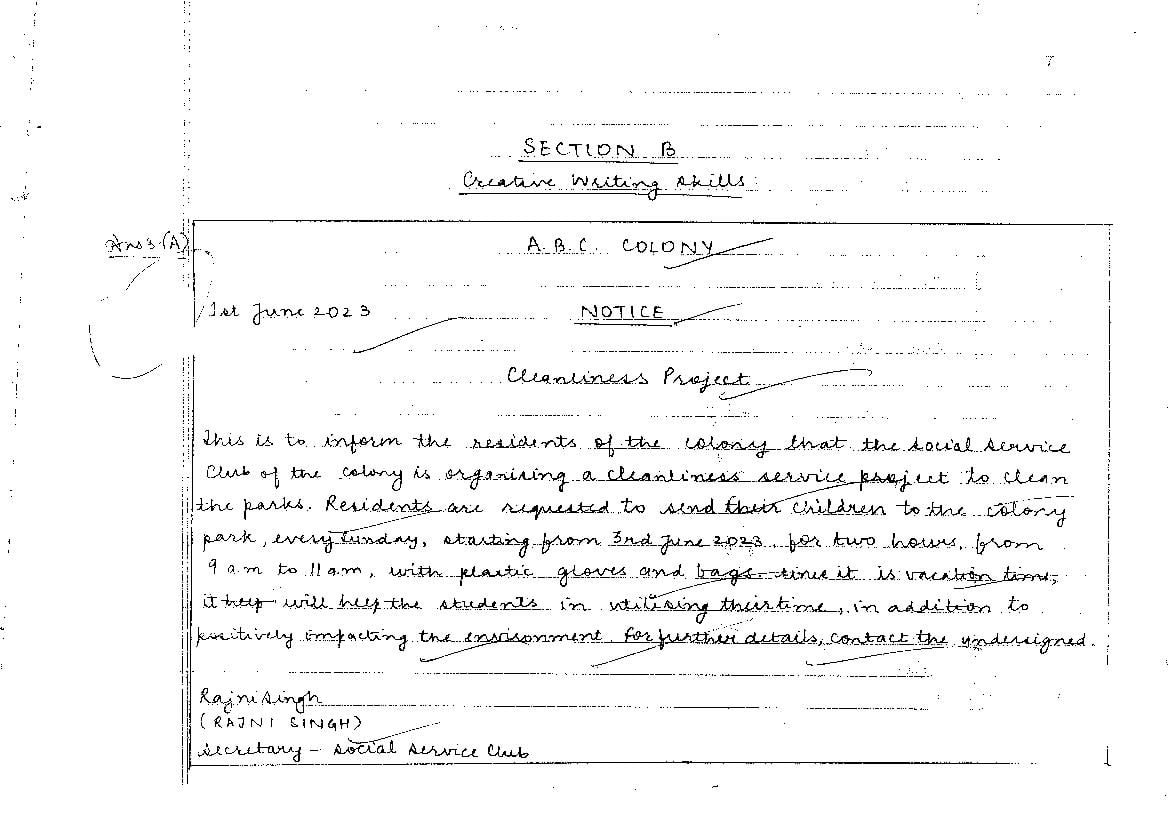 7
SECTION B
Creative Writing Skills
Ans 3 (A)
A.B.C. COLONY
1st June 2023 NOTICE
Cleanliness Project
This is to inform the residents of the colony that the Social Service
Club of the colony is organising a cleanliness service project to clean
the parks. Residents are requested to send their children to the colony
park, every Sunday, starting from 3rd June 2023, for two hours, from
9 am to 11 am, with plastic gloves and bags. Since it is vacation time,
it help will help the students in utilising their time, in addition to
positively impacting the environment. For further details, contact the undersigned.
Rajni Singh
(RAJNI SINGH)
Secretary - Social Service Club